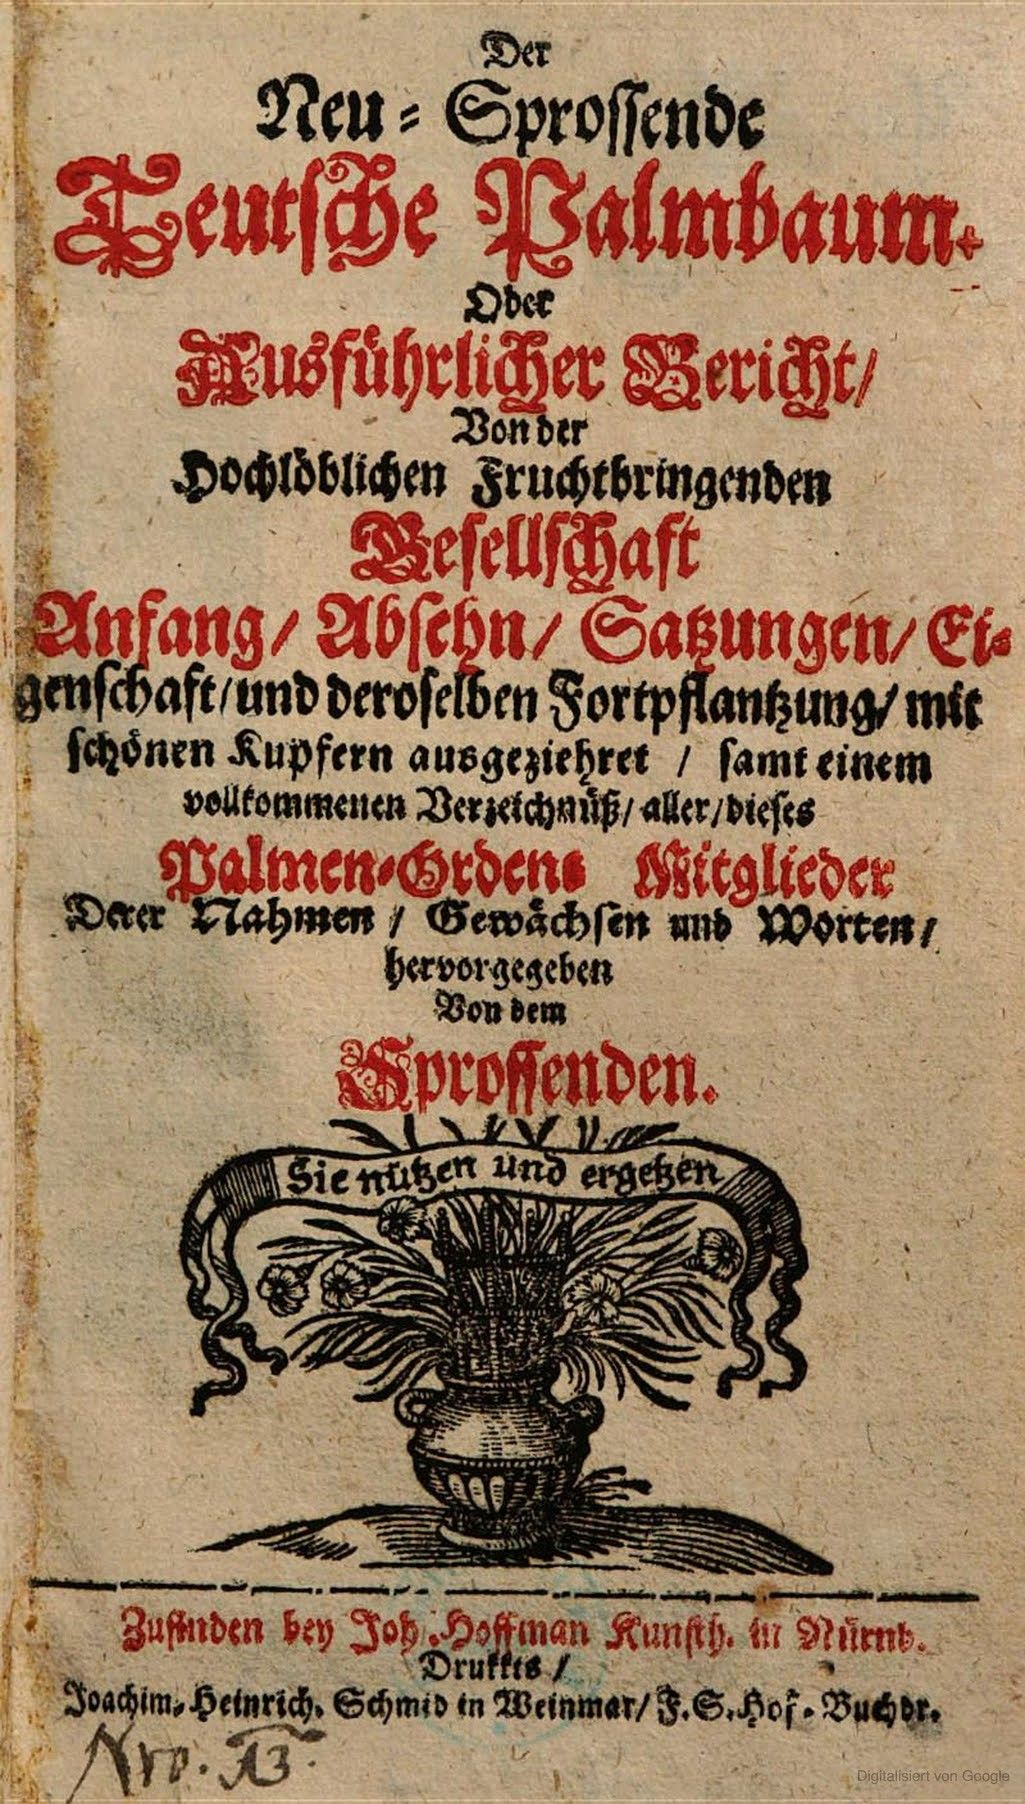 Der
Neu-Sprossende
Teutsche Palmbaum.
Oder
Ausführlicher Bericht/
Von der
Hochlöblichen Fruchtbringenden
Gesellschaft
Anfang/ Absehn/ Satzungen/ Ei-
genschaft/ und deroselben Fortpflantzung/ mit
schönen Kupfern ausgeziehret / samt einem
vollkommenen Verzeichnüß/ aller/ dieses
Palmen-Ordens Mitglieder
Derer Nahmen / Gewächsen und Worten/
hervorgegeben
Von dem
Sprossenden.
Sie nützen und ergetzen
Zufinden bey Joh. Hoffman Kunsth. in Nürnb.
Drukkts /
Joachim-Heinrich. Schmid in Weinmar/ F.S.Hof-Buchdr.
Nro.
Digitalisiert von Google